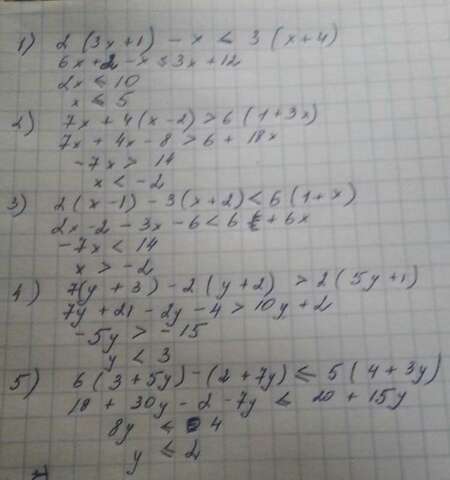 1) 2 (3x+1) - x ≤ 3 (x+4)
6x+2-x≤3x+12
2x ≤ 10
x ≤ 5
2) 7x + 4(x-2) > 6 (1+3x)
7x + 4x - 8 > 6 + 18x
-7x > 14
x < -2
3) 2 (x-1) - 3(x+2) < 6 (1+x)
2x - 2 - 3x - 6 < 6 + 6x
-7x < 14
x > -2
4) 7(y+3) - 2 (y+2) > 2 (5y+1)
7y + 21 - 2y - 4 > 10y + 2
-5y > -15
y < 3
5) 6 (3+5y) - (2+7y) ≤ 5 (4+3y)
18 + 30y - 2 - 7y ≤ 20 + 15y
8y ≤ 4
y ≤ 2